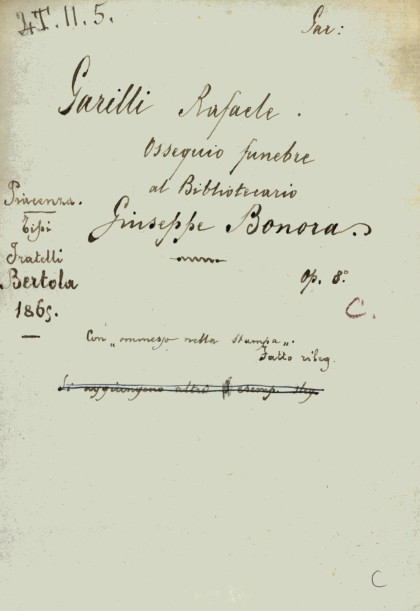 4T.II.5.
Gar:
Garilli Rafaele.
Ossequio funebre
al Bibliotecario
Giuseppe Bonora.
Piacenza.
Tipi
Fratelli
Bertola
1865.
op. 8°
C.
Con „ommesso nella stampa„.
Fatto rileg.
Si aggiungono altri esemp.
C